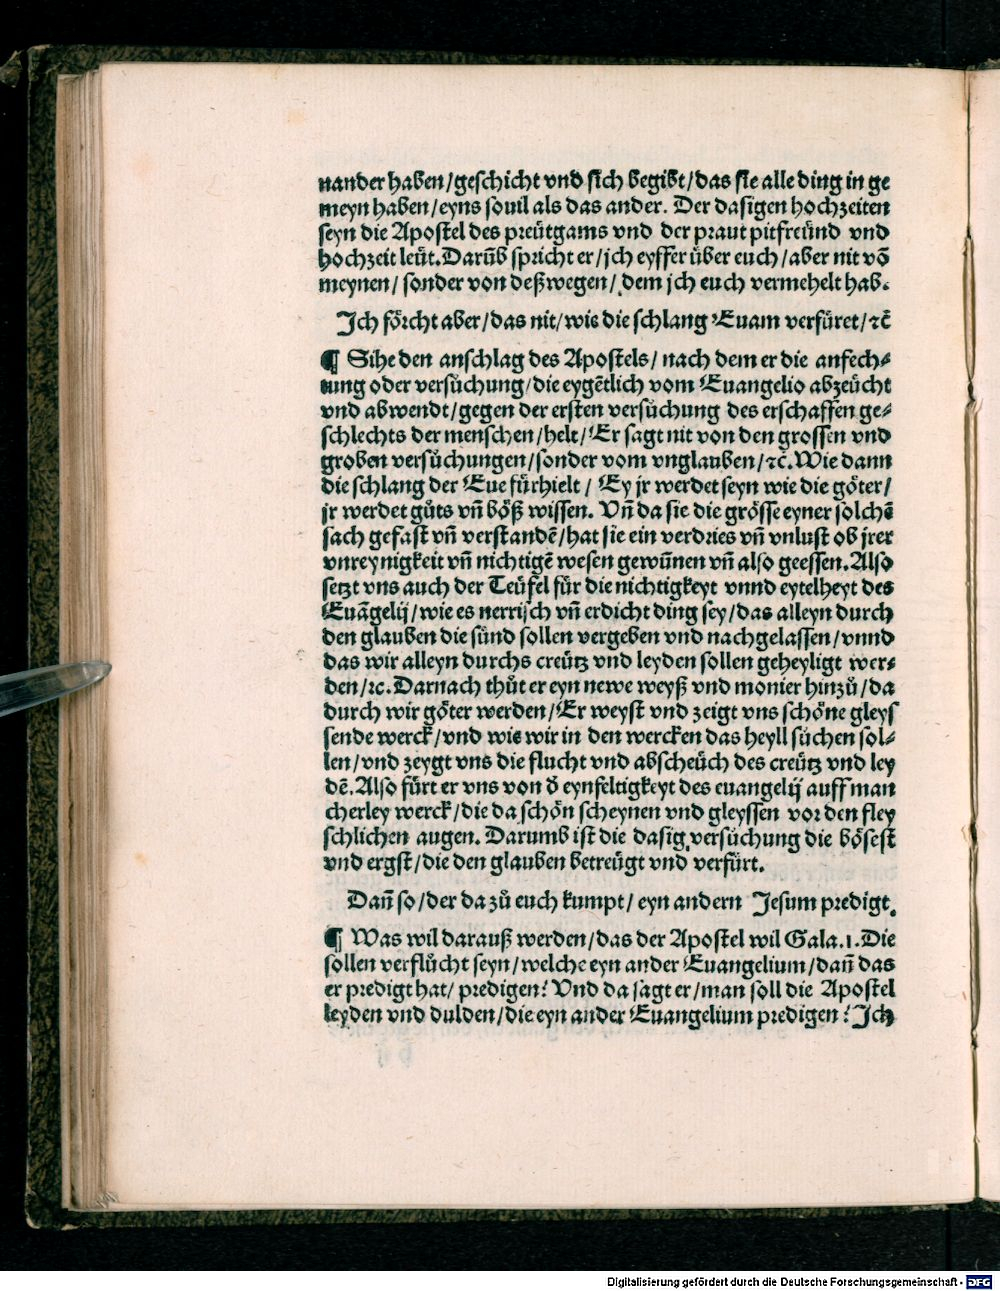 nander haben/geschicht vnd sich begibt/das sie alle ding in ge
meyn haben/eyns souil als das ander. Der dasigen hochzeiten
seyn die Apostel des preütgams vnd der praut pitfreünd vnd
hochzeit leüt.Darũb spricht er/jch eyffer über euch/aber nit võ
meynen/ sonder von deßwegen/ dem jch euch vermehelt hab.
Jch förcht aber/das nit/wie die schlang Euam verfüret/ꝛc̃
¶ Sihe den anschlag des Apostels/ nach dem er die anfech⸗
tung oder versůchung/die eygẽtlich vom Euangelio abzeücht
vnd abwendt/gegen der ersten versůchung des erschaffen ge⸗
schlechts der menschen/helt/Er sagt nit von den grossen vnd
groben versůchungen/sonder vom vnglauben/ꝛc̃.Wie dann
die schlang der Eue fürhielt / Ey jr werdet seyn wie die göter/
jr werdet gůts vñ böß wissen. Vñ da sie die grösse eyner solchẽ
sach gefast vñ verstandẽ/hat sie ein verdries vñ vnlust ob jrer
vnreynigkeit vñ nichtigẽ wesen gewũnen vñ also geessen.Also
setzt vns auch der Teüfel für die nichtigkeyt vnnd eytelheyt des
Euãgelij/wie es nerrisch vñ erdicht ding sey/das alleyn durch
den glauben die sünd sollen vergeben vnd nachgelassen/vnnd
das wir alleyn durchs creütz vnd leyden sollen geheyligt wer⸗
den/ꝛc.Darnach thůt er eyn newe weyß vnd monier hinzů/da
durch wir göter werden/Er weyst vnd zeigt vns schöne gleys
sende werck/vnd wie wir in den wercken das heyll sůchen sol⸗
len/vnd zeygt vns die flucht vnd abscheüch des creütz vnd ley
dẽ.Also fürt er vns von d̕ eynfeltigkeyt des euangelij auff man
cherley werck/die da schön scheynen vnd gleyssen vor den fley
schlichen augen. Darumb ist die dasig versůchung die bösest
vnd ergst/die den glauben betreügt vnd verfürt.
Dañ so/der da zů euch kumpt/ eyn andern Jesum predigt.
¶ Was wil darauß werden/das der Apostel wil Gala.1.Die
sollen verflůcht seyn/welche eyn ander Euangelium/dañ das
er predigt hat/ predigen? Vnd da sagt er/man soll die Apostel
leyden vnd dulden/die eyn ander Euangelium predigen? Jch
Digitalisierung gefördert durch die Deutsche Forschungsgemeinschaft - DFG